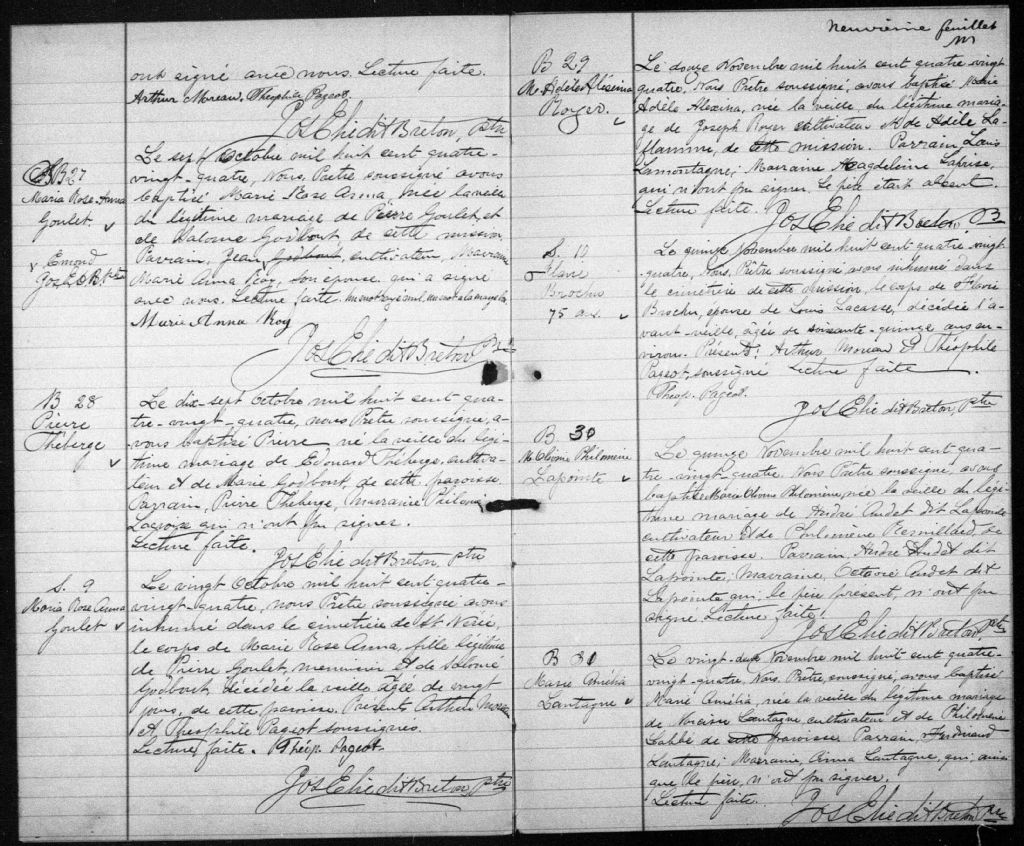 ont signé avec nous. Lecture faite.
Arthur Moreau, Théophile Pageot.
Jos Elie dit Breton, Ptre
B 27
Maria Rose-Anna
Goulet.
Le sept Octobre mil huit cent quatre-
vingt-quatre, Nous, Prêtre soussigné avons
baptisé Marie Rose Anna, née la veille
du légitime mariage de Pierre Goulet, et
de Salomé Godbout de cette mission.
Parrain, Jean cultivateur, Marraine
Marie Anna Roy, son épouse qui a signé
avec nous. Lecture faite.
Marie Anna Roy
Jos Elie dit Breton Ptre
Emond
Jos E. d B. ptre
B 28
Pierre
Théberge
Le dix-sept Octobre mil huit cent qua-
tre-vingt-quatre, nous Prêtre soussigné, a-
vons baptisé Pierre né la veille du légi-
time mariage de Edouard Théberge, cultiva-
teur et de Marie Godbout, de cette paroisse.
Parrain, Pierre Théberge, Marraine
Lacroix qui n'ont pu signer.
Lecture faite.
Jos Elie dit Breton ptre
S. 9
Maria Rose Anna
Goulet
Le vingt Octobre mil huit cent quatre-
vingt-quatre, nous Prêtre soussigné avons
inhumé dans le cimetière de St Nérée,
le corps de Marie Rose Anna, fille légitime
de Pierre Goulet, menuisier et de
Godbout, décédée la veille âgée de vingt
jours, de cette paroisse. Présents Arthur Moreau
et Théophile Pageot soussignés.
Lecture faite. Théop. Pageot.
Jos Elie dit Breton, ptre
Neuvième feuillet
B 29
M. Adèle Aléxina
Royer.
Le douze Novembre mil huit cent quatre vingt
quatre, Nous Prêtre soussigné, avons baptisé Marie
Adèle Alexina, née la veille du légitime maria-
ge de Joseph Royer cultivateur et de Adèle La-
flamme, de cette mission. Parrain Louis
Lamontagne, Marraine Magdeleine Laprise,
qui n'ont pu signer. Le père était absent.
Lecture faite.
Jos Elie dit Breton, P
S. 10
Flavie
Brochu
75 ans
Le quinze Novembre mil huit cent quatre vingt
quatre, Nous, Prêtre soussigné avons inhumé dans
le cimetière de cette mission, le corps de Flavie
Brochu, épouse de Louis Lacasse, décédée l'a-
vant-veille, âgée de soixante-quinze ans en-
viron. Présents: Arthur Moreau et Théophile
Pageot, soussigné Lecture faite
Théop. Pageot.
Jos Elie dit Breton, Ptre
B 30
M. Philomène
Lapointe
Le quinze Novembre mil huit cent qua-
tre-vingt-quatre, Nous Prêtre soussigné, avons
baptisé Marie Philomène, née la veille du légi-
time mariage de André Audet dit Lapointe
cultivateur et de Philomène de
cette paroisse. Parrain, André Audet dit
Lapointe; Marraine, Octavie Audet dit
Lapointe qui, le père présent, n'ont pu
signé Lecture faite.
Jos Elie dit Breton, Ptre
B 31
Marie Amélia
Lantagne
Le vingt-deux Novembre mil huit cent quatre-
vingt-quatre, Nous, Prêtre, soussigné, avons baptisé
Marie Amélia, née la veille du légitime mariage
de Narcisse Lantagne, cultivateur et de Philomène
Labbé de cette paroisse Parrain Ferdinand
Lantagne; Marraine, Anna Lantagne, qui, ainsi
que le père, n'ont pu signer.
Lecture faite.
Jos Elie dit Breton ptre